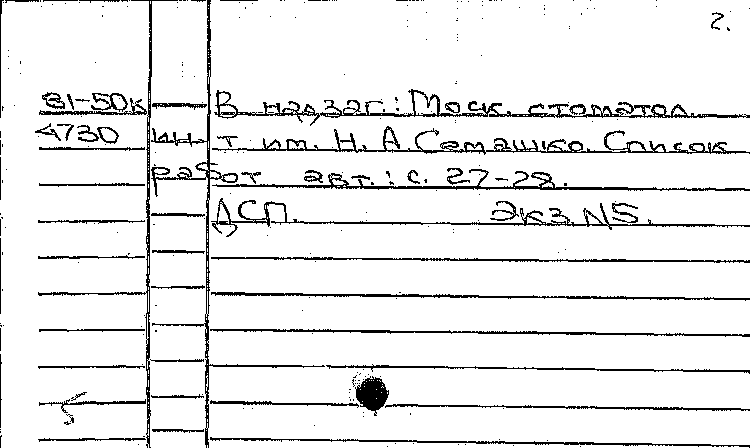 2.
81-50к В надзаг.: Моск. стоматол.
4730 ин-т им. Н. А. Семашко. Список
работ авт.: с. 27-28.
ДСП. Экз. N5.